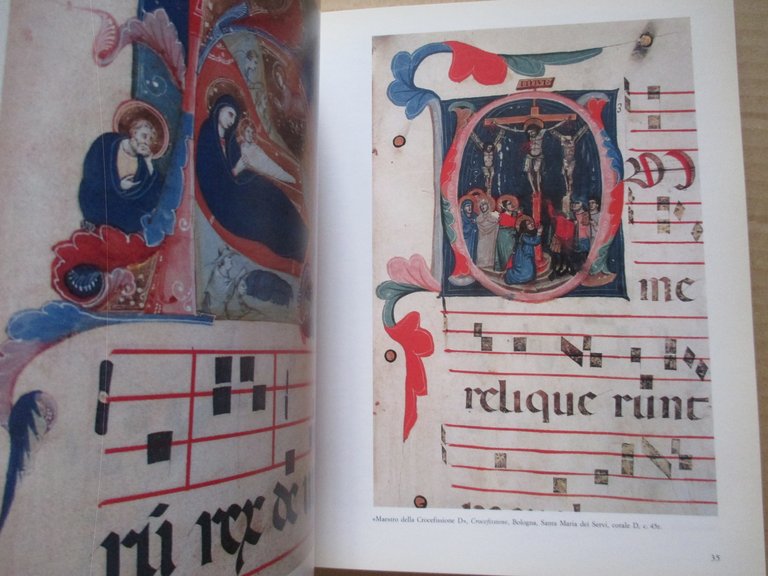 rū rex de
me
relique runt
«Maestro della Crocefissione D», Crocefissione, Bologna, Santa Maria dei Servi, corale D, c. 45r.
35